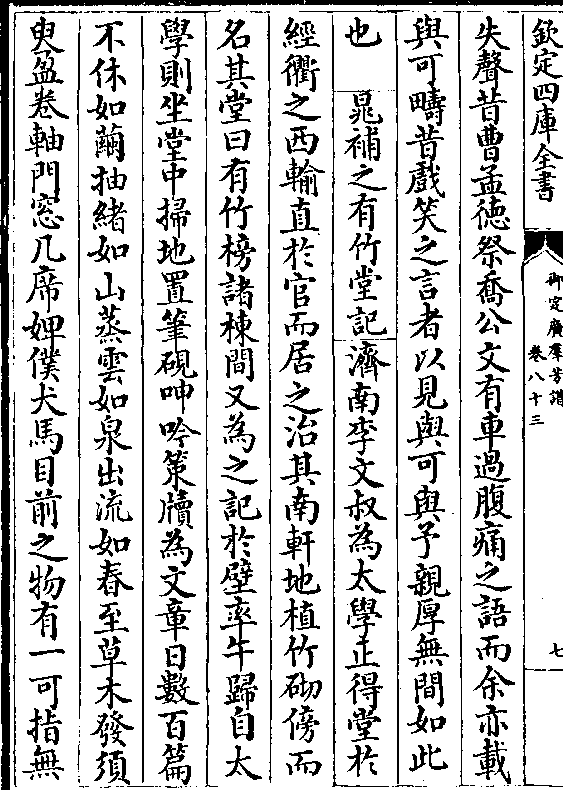 欽定四庫全書
御定廣羣芳譜
卷八十三
七
失聲昔曹孟德祭喬公文有車過腹痛之語而余亦載
與可疇昔戲笑之言者以見與可與予親厚無間如此
也　晁補之有竹堂記　濟南李文叔為太學正得堂於
經衢之西輸直於官而居之治其南軒地植竹砌傍而
名其堂曰有竹榜諸棟間又為之記於壁率午歸自太
學則坐堂中掃地置筆硯呻吟策牘為文章日數百篇
不休如繭抽緒如山蒸雲如泉出流如春至草木發須
臾盈卷軸門窓几席婢僕犬馬目前之物有一可指無